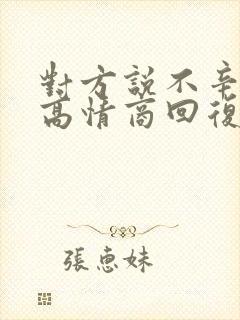 對方說不辛
高情商回復
張惠妹